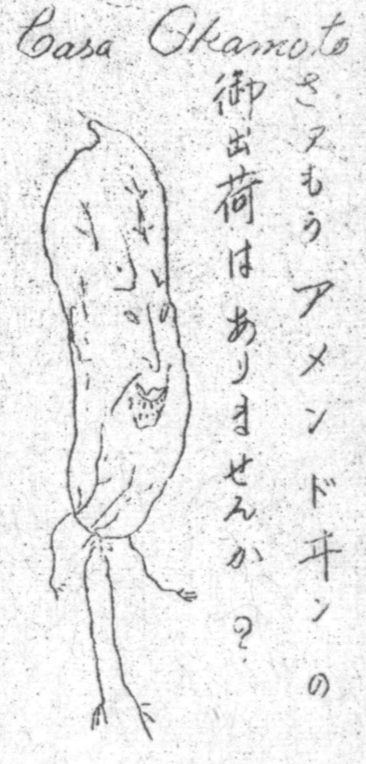 Casa Okamoto
さアもう アメンドヰンの
御出荷はありませんか？